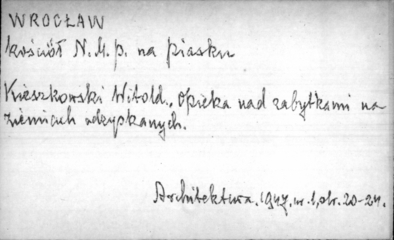 WROCŁAW
kościół N.M.p. na piasku
Kieszkowski Witold., Opieka nad zabytkami na
ziemiach odzyskanych.
Architektura. 1947. nr. 1, str. 20-24.